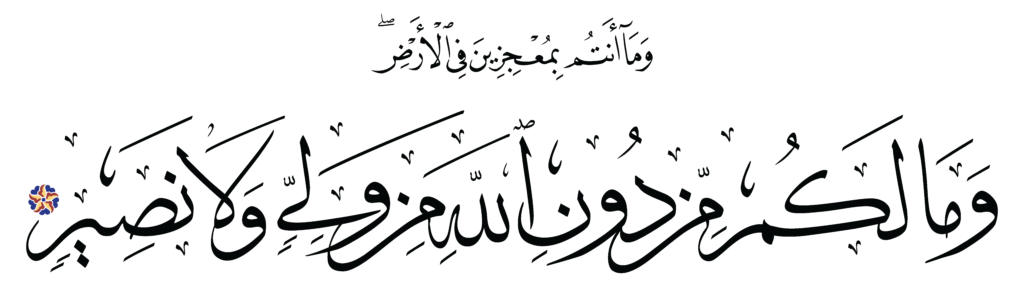 وَمَآ أَنتُم بِمُعْجِزِينَ فِى ٱلْأَرْضِ ۖ
وَمَا لَكُم مِّن دُونِ ٱللَّهِ مِن وَلِىٍّ وَلَا نَصِيرٍ